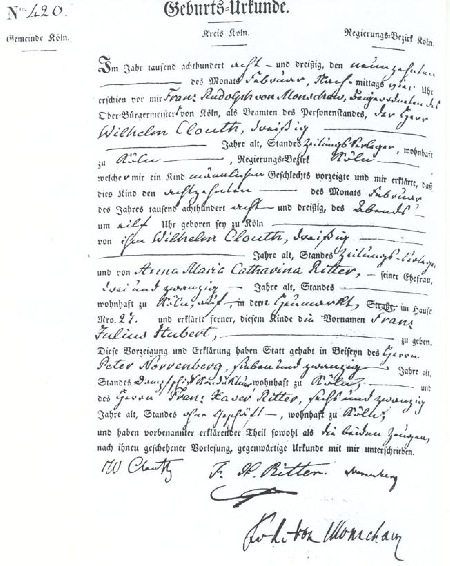 Nro 420.
Geburts-Urkunde.
Gemeinde Köln.
Kreis Köln.
Regierungs-Bezirk Köln.
Im Jahr tausend achthundert acht – und dreißig, den neunzehnten
des Monats Februar, Nachmittags Uhr
erschien vor mir Franz Rudolph von Monschaw, Beigeordneten des
Ober-Bürgermeister von Köln, als Beamten des Personenstandes, der Herr
Wilhelm Clouth, dreißig
Jahre alt, Standes Zeitungs-Verleger, wohnhaft
zu Köln, Regierungs-Bezirk Köln
welcher mir ein Kind männlichen Geschlechts vorzeigte und mir erklärte, daß
dies Kind den achtzehnten des Monats Februar
des Jahres tausend achthundert acht – und dreißig, des Abends
um eilf Uhr geboren sey zu Köln
von ihm Wilhelm Clouth, dreißig
Jahre alt, Standes Zeitungs-Verleger
und von Anna Maria Catharina Ritter, seiner Ehefrau,
drei und zwanzig Jahre alt, Standes
wohnhaft zu Köln, in dem Heumarkt, Straße, im Hause
Nro. 27. und erklärte ferner, diesem Kinde die Vornamen Franz
Julius Hubert, zu geben.
Diese Vorzeigung und Erklärung haben Statt gehabt in Beiseyn des Herrn
Peter Norrenberg, sieben und zwanzig Jahre alt,
Standes wohnhaft zu Köln und
des Herrn Franz Xaver Ritter, sechs und zwanzig
Jahre alt, Standes ohne Geschäft, wohnhaft zu Köln
und haben vorbenannter erklärender Theil sowohl als die beiden Zeugen,
nach ihnen geschehener Vorlesung, gegenwärtige Urkunde mit mir unterschrieben.
W Clouth F. X. Ritter Norrenberg
von Monschaw